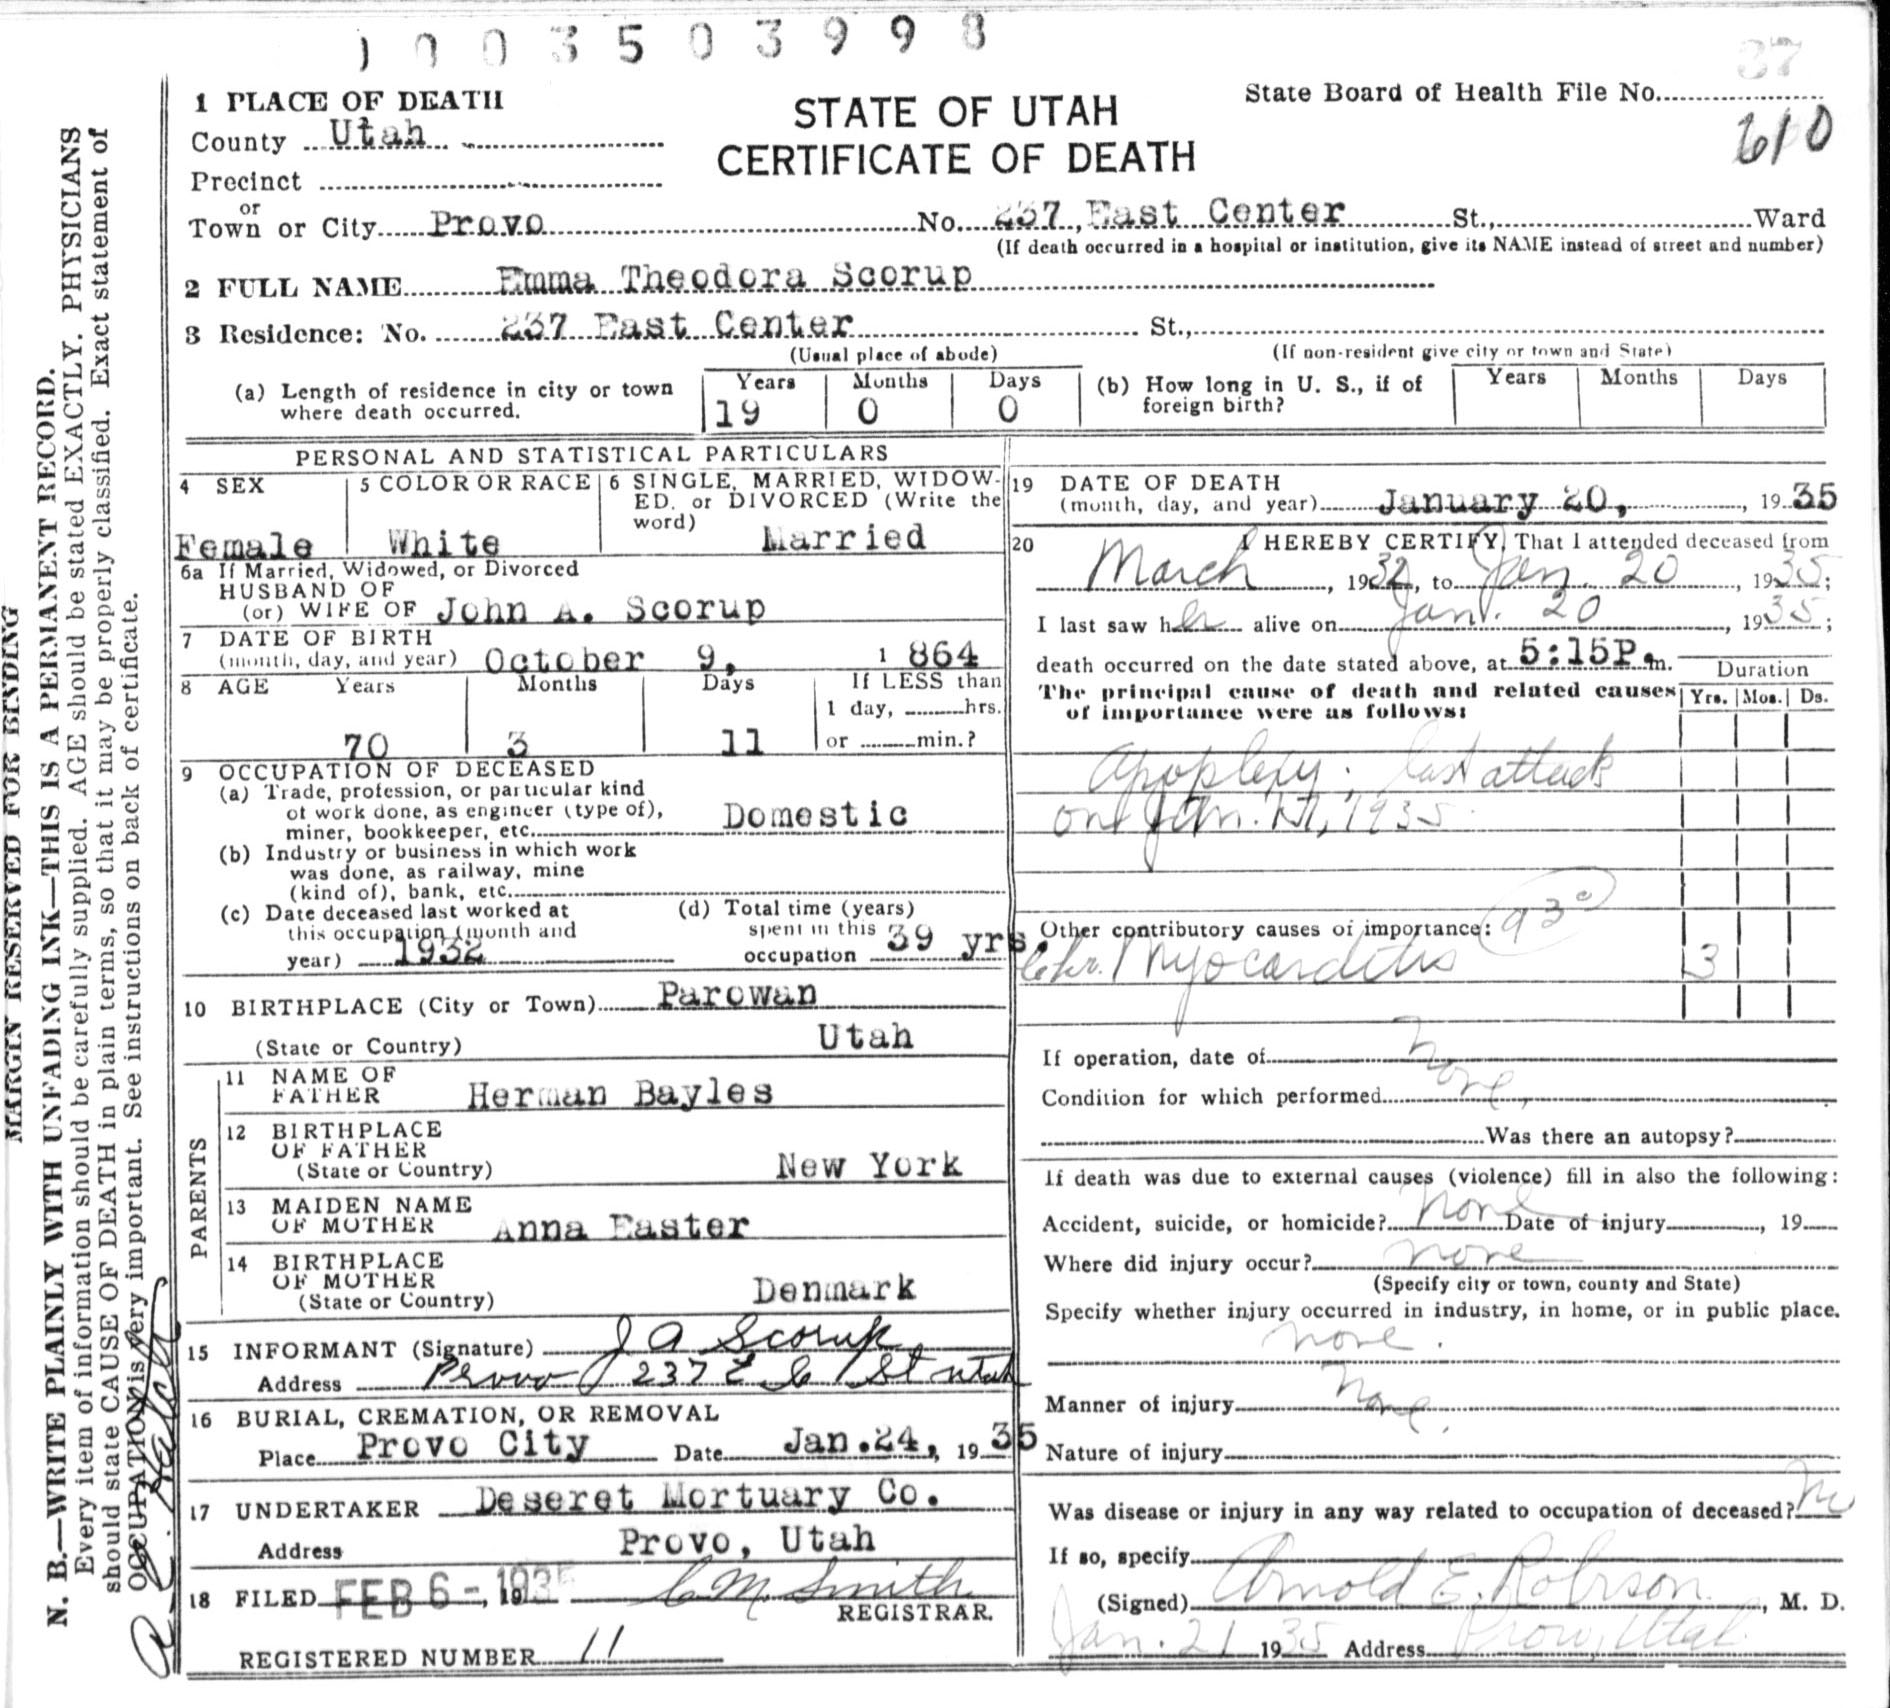 1 0 0 3 5 0 3 9 9 8
37
1 PLACE OF DEATH
State Board of Health File No.
610
County Utah
STATE OF UTAH
CERTIFICATE OF DEATH
Precinct
or
Town or City Provo No. 237, East Center St., Ward
(If death occurred in a hospital or institution, give its NAME instead of street and number)
2 FULL NAME Emma Theodora Scorup
3 Residence: No. 237 East Center St.,
(Usual place of abode) (If non-resident give city or town and State)
(a) Length of residence in city or town where death occurred.
Years Months Days
19 0 0
(b) How long in U. S., if of foreign birth?
Years Months Days
PERSONAL AND STATISTICAL PARTICULARS
4 SEX
Female
5 COLOR OR RACE
White
6 SINGLE, MARRIED, WIDOW-
ED, or DIVORCED (Write the
word)
Married
6a If Married, Widowed, or Divorced
HUSBAND OF
(or) WIFE OF John A. Scorup
7 DATE OF BIRTH
(month, day, and year) October 9, 1864
8 AGE Years Months Days If LESS than
1 day, hrs.
70 3 11 or min.?
9 OCCUPATION OF DECEASED
(a) Trade, profession, or particular kind
of work done, as engineer (type of),
miner, bookkeeper, etc. Domestic
(b) Industry or business in which work
was done, as railway, mine
(kind of), bank, etc.
(c) Date deceased last worked at
this occupation (month and
year) 1932
(d) Total time (years)
spent in this
occupation 39 yrs.
10 BIRTHPLACE (City or Town) Parowan
(State or Country) Utah
PARENTS
11 NAME OF
FATHER Herman Bayles
12 BIRTHPLACE
OF FATHER
(State or Country) New York
13 MAIDEN NAME
OF MOTHER Anna Easter
14 BIRTHPLACE
OF MOTHER
(State or Country) Denmark
15 INFORMANT (Signature) J A Scorup
Address Provo 237 E C St Utah
16 BURIAL, CREMATION, OR REMOVAL
Place Provo City Date Jan.24, 1935
17 UNDERTAKER Deseret Mortuary Co.
Address Provo, Utah
18 FILED FEB 6-1935, 19 C M. Smith
REGISTRAR.
REGISTERED NUMBER 11
19 DATE OF DEATH
(month, day, and year) January 20, , 1935
20 I HEREBY CERTIFY, That I attended deceased from
March , 1932, to Jan. 20 , 1935;
I last saw her alive on Jan. 20 , 1935;
death occurred on the date stated above, at 5:15P. m.
Duration
The principal cause of death and related causes
of importance were as follows:
Yrs. Mos. Ds.
Apoplexy; last attack
on Jan. 1935
Other contributory causes of importance: 93c
Chr. Myocarditis 3
If operation, date of None
Condition for which performed none,
Was there an autopsy?
If death was due to external causes (violence) fill in also the following:
Accident, suicide, or homicide? none Date of injury , 19
Where did injury occur? none
(Specify city or town, county and State)
Specify whether injury occurred in industry, in home, or in public place.
none.
Manner of injury None.
Nature of injury
Was disease or injury in any way related to occupation of deceased? No
If so, specify
(Signed) Arnold E. Robison , M. D.
Jan. 21 1935 Address Provo, Utah
MARGIN RESERVED FOR BINDING
N. B.—WRITE PLAINLY WITH UNFADING INK—THIS IS A PERMANENT RECORD.
Every item of information should be carefully supplied. AGE should be stated EXACTLY. PHYSICIANS
should state CAUSE OF DEATH in plain terms, so that it may be properly classified. Exact statement of
OCCUPATION is very important. See instructions on back of certificate.